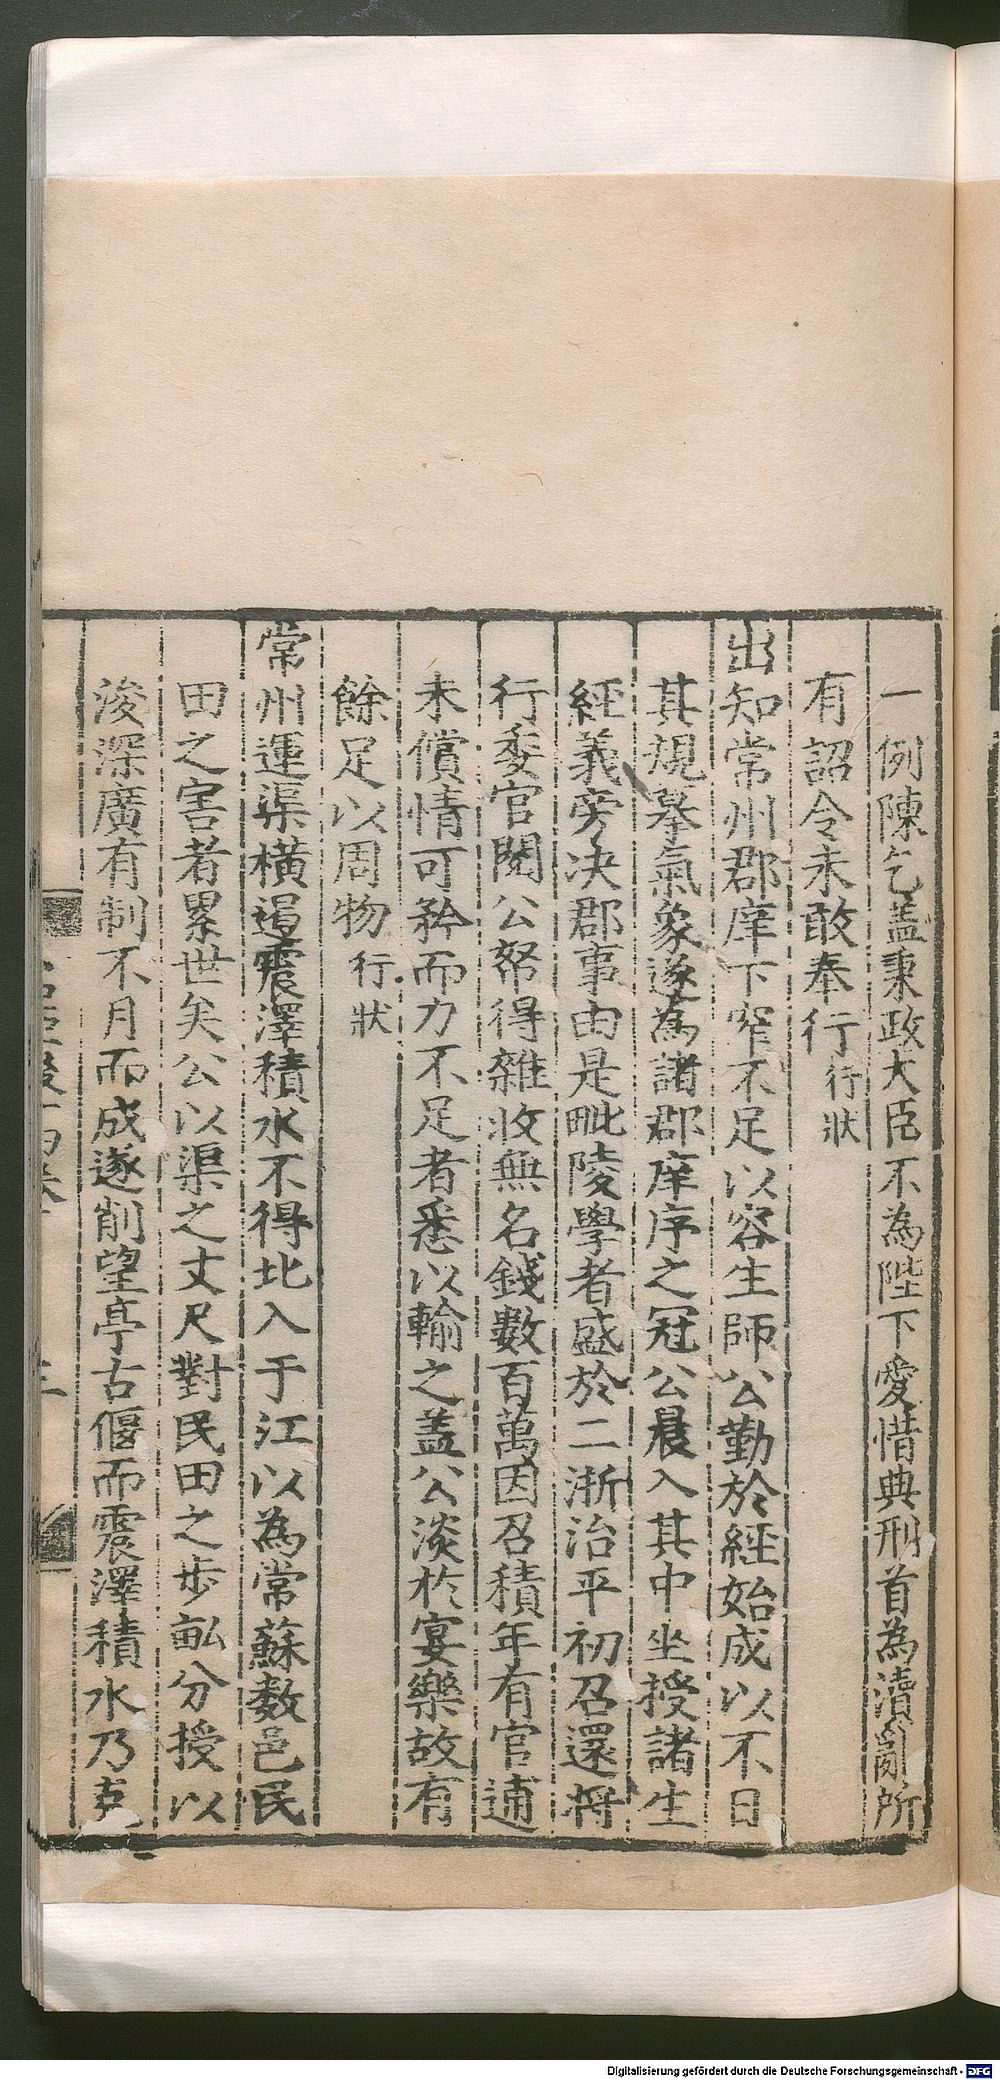 一例陳乞盖秉政大臣不為陛下愛惜典刑首為瀆亂所
有詔令未敢奉行行狀
出知常州郡庠下窄不足以容生師公勤於經始成以不日
其規摹氣象遂為諸郡庠序之冠公晨入其中坐授諸生
經義旁决郡事由是毗陵學者盛於二浙治平初召還将
行委官閱公帑得雜收無名錢數百萬因召積年有官逋
未償情可矜而力不足者悉以輸之盖公淡於宴樂故有
餘足以周物行狀
常州運渠横遏震澤積水不得北入于江以為常蘇数邑民
田之害者累世矣公以渠之丈尺對民田之步畝分授以
浚深廣有制不月而成遂削望亭古偃而震澤積水乃克
Digitalisierung gefördert durch die Deutsche Forschungsgemeinschaft - DFG